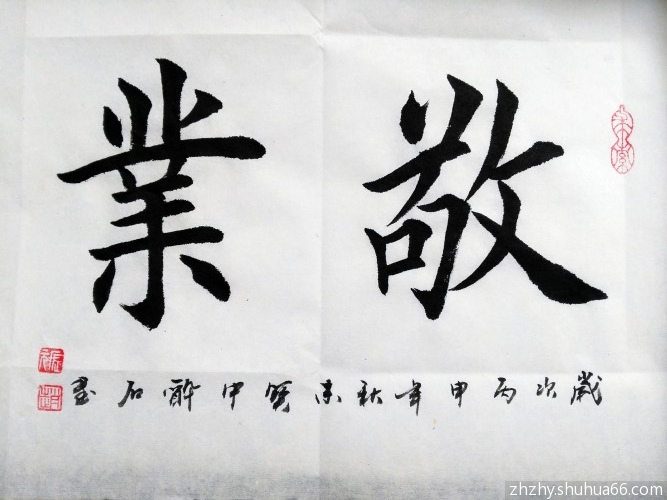 敬業
歲次丙申年秋末賢中醉石書
zhzhy.shuhua66.com